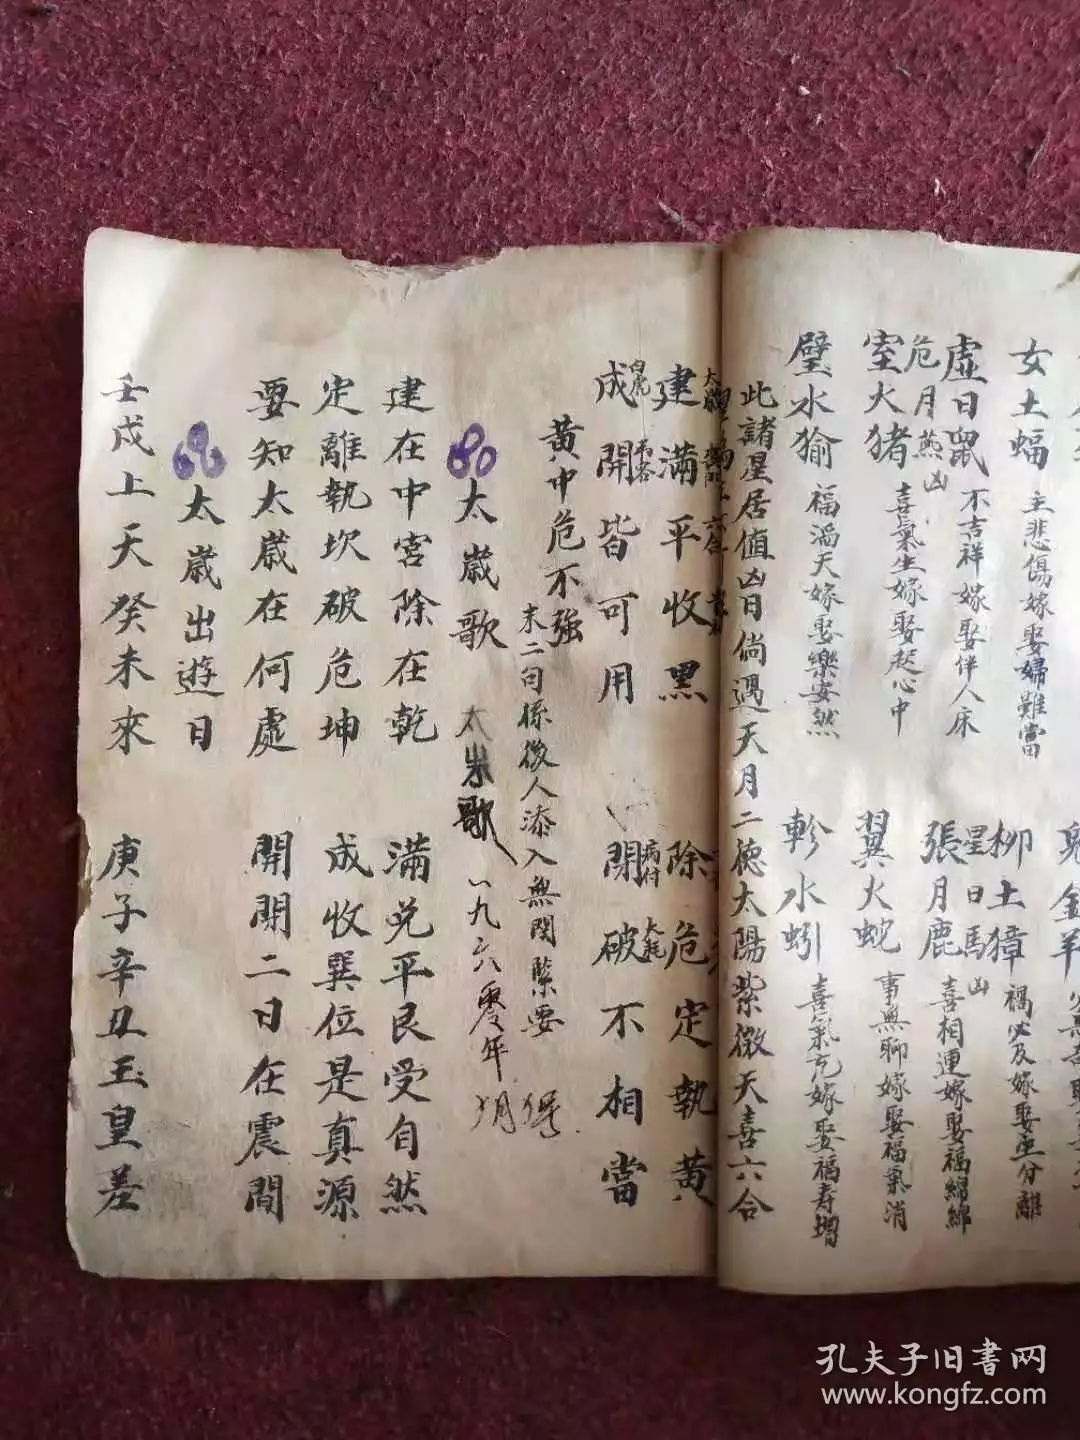 女土蝠 主悲傷嫁娶婦難當
柳土獐 禍必及嫁娶並分離
虛日鼠 不吉祥嫁娶伴人床
星日馬 凶
危月燕 凶
張月鹿 喜相連嫁娶福綿綿
室火猪 喜氣生嫁娶起心中
翼火蛇 事無聊嫁娶福氣消
璧水㺄 福滔天嫁娶樂安然
軫水蚓 喜氣充嫁娶福寿增
此諸星居值凶日倘遇天月二德太陽紫微天喜六合
建滿平收黑 除危定執黃
成開皆可用 閉破不相當
白虎
病符 大耗
黃中危不強
末二句係後人添入無関緊要
68 太歲歌
一九六零年 月
建在中宮除在乾 滿兌平艮受自然
定離執坎破危坤 成收巽位是真源
要知太歲在何處 開閉二日在震間
68 太歲出遊日
壬戌上天癸未來 庚子辛丑玉皇差
孔夫子旧書网
www.kongfz.com